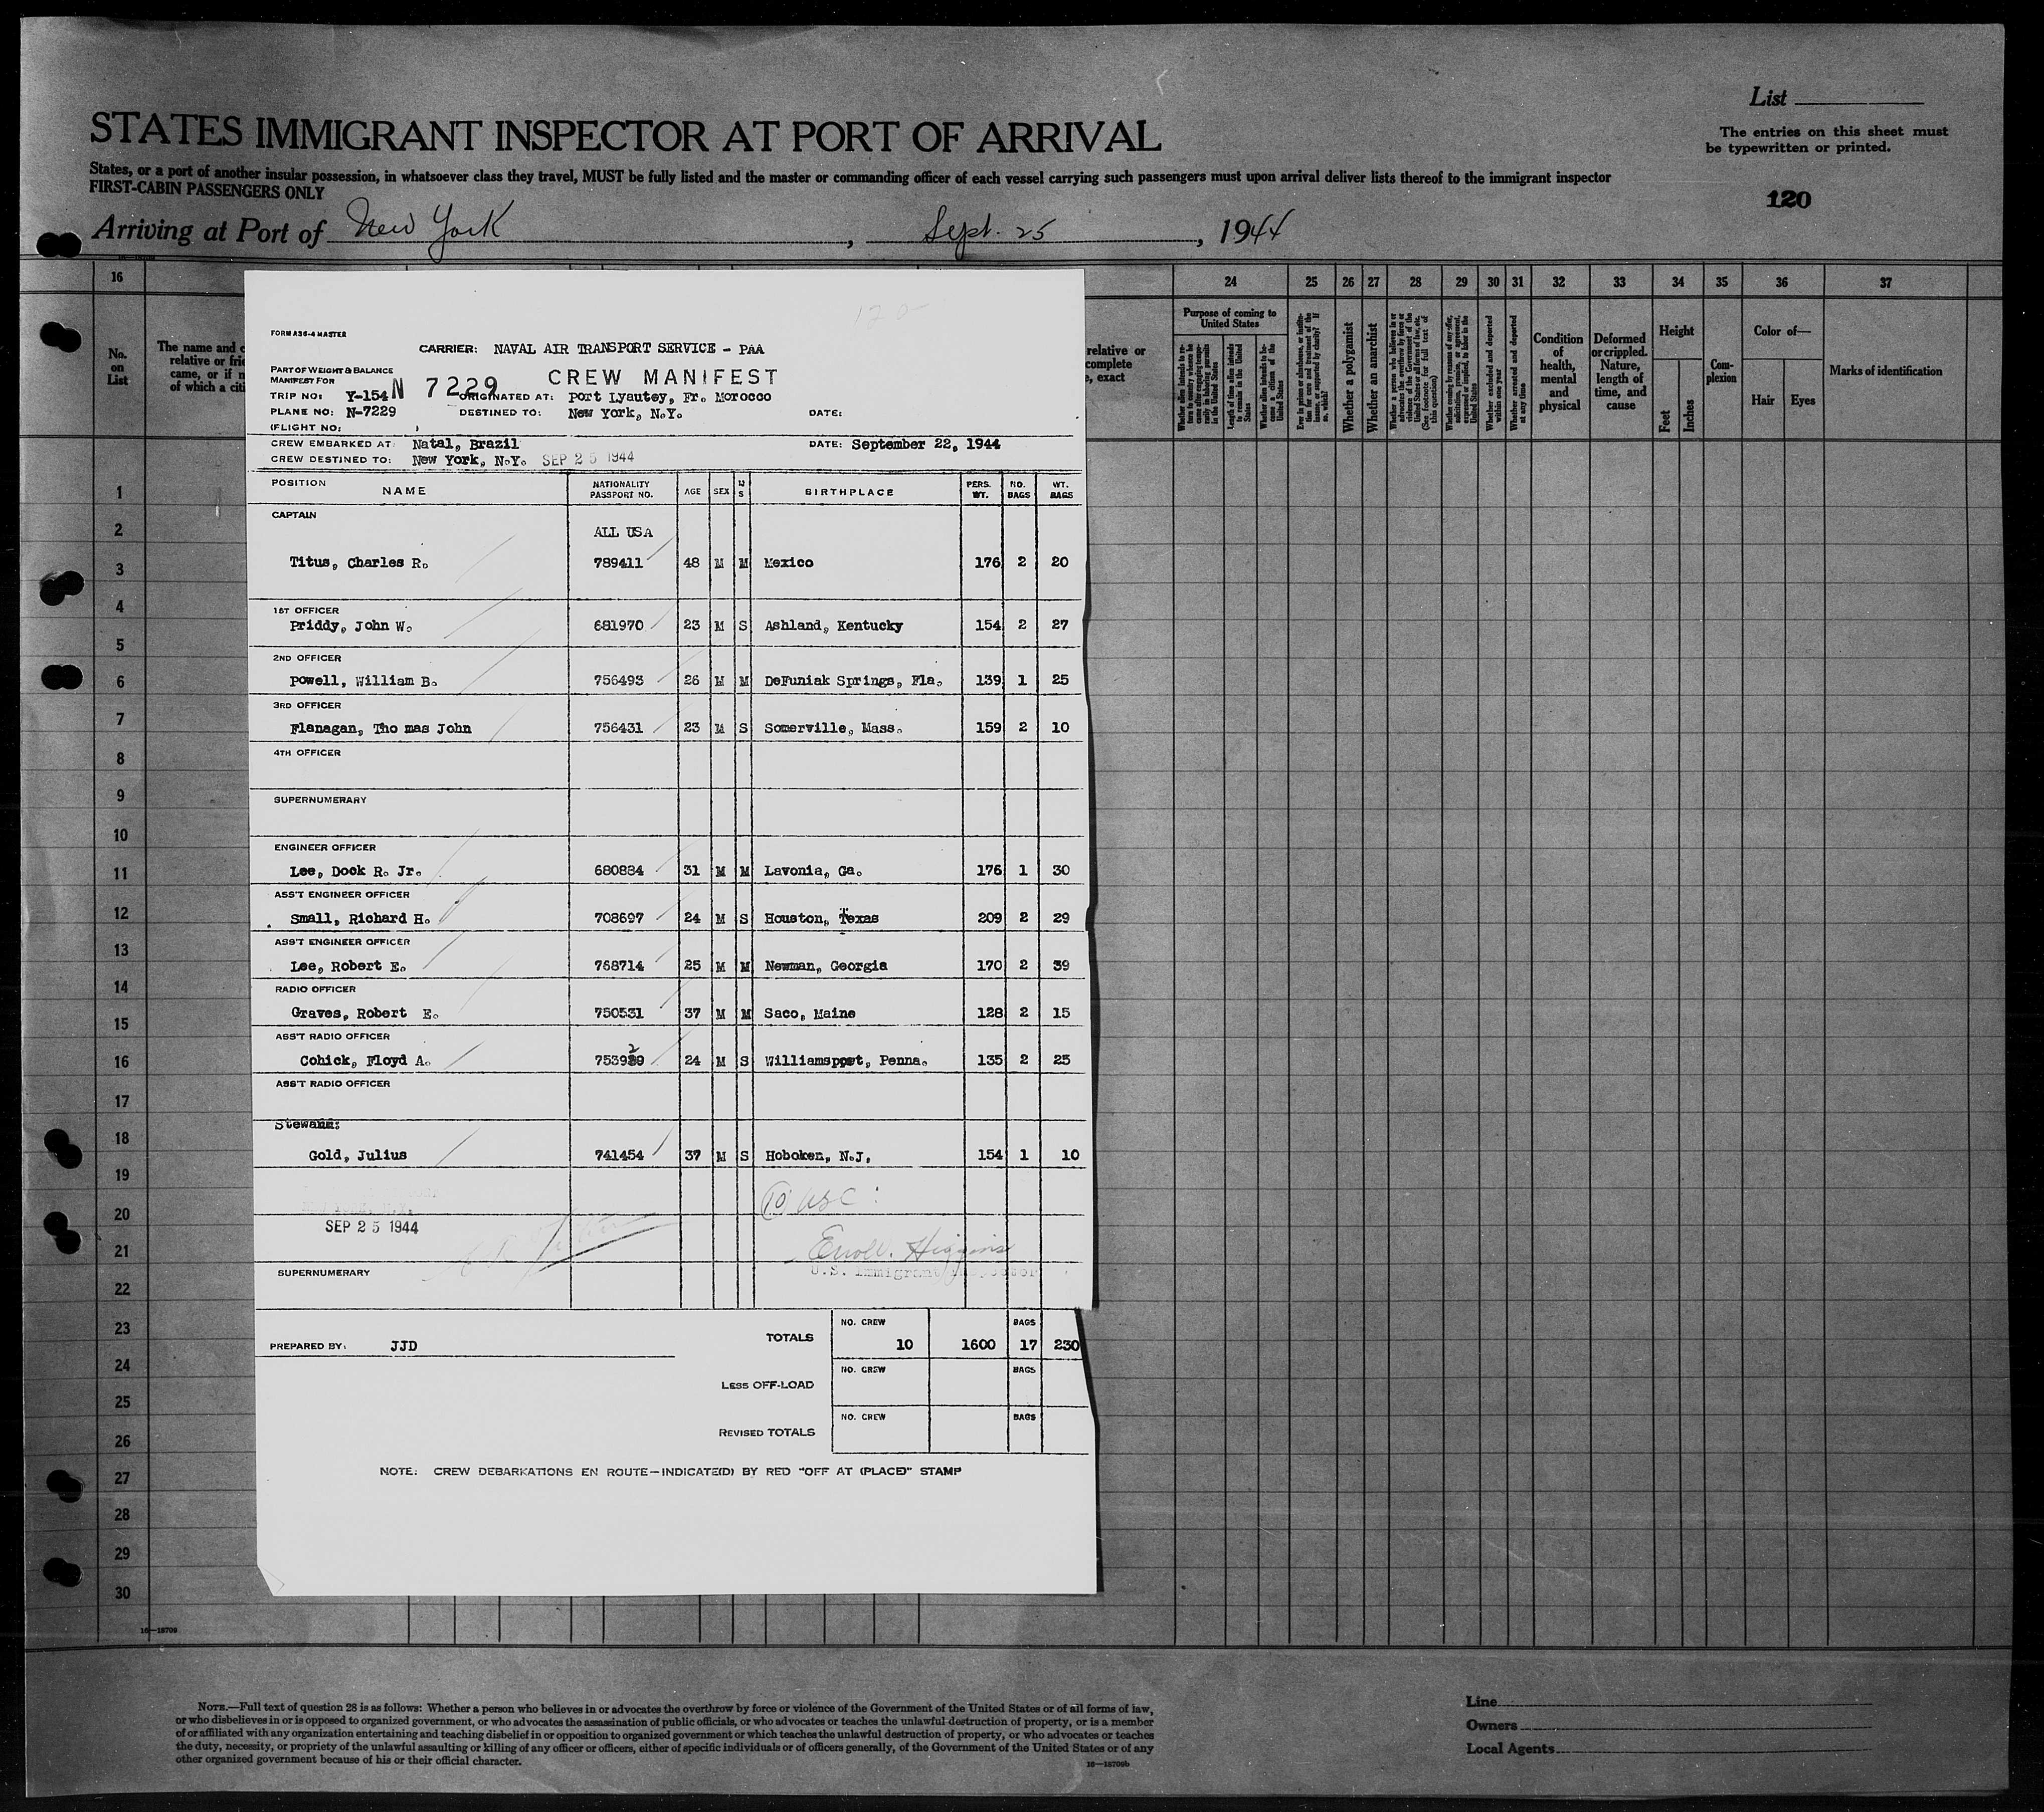 List
STATES IMMIGRANT INSPECTOR AT PORT OF ARRIVAL
The entries on this sheet must
be typewritten or printed.
States, or a port of another insular possession, in whatsoever class they travel, MUST be fully listed and the master or commanding officer of each vessel carrying such passengers must upon arrival deliver lists thereof to the immigrant inspector
FIRST-CABIN PASSENGERS ONLY
120
Arriving at Port of New York, Sept. 25, 1944
16 24 25 26 27 28 29 30 31 32 33 34 35 36 37
No. on List
The name and
relative or
came, or if
of which a
relative or
complete
, exact
Purpose of coming to United States
Whether a polygamist
Whether an anarchist
Whether excluded and deported within one year
Whether arrested and deported at any time
Condition of health, mental and physical
Deformed or crippled. Nature, length of time, and cause
Height
Feet Inches
Complexion
Color of—
Hair Eyes
Marks of identification
120
FORM A36-4 MASTER
CARRIER: NAVAL AIR TRANSPORT SERVICE - PAA
PART OF WEIGHT & BALANCE
MANIFEST FOR N 7229 CREW MANIFEST
TRIP NO: Y-154 ORIGINATED AT: Port Lyautey, Fr. Morocco
PLANE NO: N-7229 DESTINED TO: New York, N.Y. DATE:
(FLIGHT NO: )
CREW EMBARKED AT: Natal, Brazil DATE: September 22, 1944
CREW DESTINED TO: New York, N.Y. SEP 25 1944
POSITION NAME NATIONALITY PASSPORT NO. AGE SEX M S BIRTHPLACE PERS. WT. NO. BAGS WT. BAGS
CAPTAIN
ALL USA
Titus, Charles R. 789411 48 M M Mexico 176 2 20
1ST OFFICER
Priddy, John W. 681970 23 M S Ashland, Kentucky 154 2 27
2ND OFFICER
Powell, William B. 756493 26 M M DeFuniak Springs, Fla. 139 1 25
3RD OFFICER
Flanagan, Tho mas John 756431 23 M S Somerville, Mass. 159 2 10
4TH OFFICER
SUPERNUMERARY
ENGINEER OFFICER
Lee, Dock R. Jr. 680884 31 M M Lavonia, Ga. 176 1 30
ASS'T ENGINEER OFFICER
Small, Richard H. 708697 24 M S Houston, Texas 209 2 29
ASS'T ENGINEER OFFICER
Lee, Robert E. 768714 25 M M Newman, Georgia 170 2 39
RADIO OFFICER
Graves, Robert E. 750531 37 M M Saco, Maine 128 2 15
ASS'T RADIO OFFICER
Cohick, Floyd A. 753929 24 M S Williamsport, Penna. 135 2 25
ASS'T RADIO OFFICER
Steward:
Gold, Julius 741454 37 M S Hoboken, N.J. 154 1 10
10 USC:
SEP 25 1944
Higgins
U.S. Immigrant Inspector
SUPERNUMERARY
TOTALS NO. CREW 10 1600 BAGS 17 230
PREPARED BY: JJD
LESS OFF-LOAD NO. CREW BAGS
REVISED TOTALS NO. CREW BAGS
NOTE: CREW DEBARKATIONS EN ROUTE—INDICATE(D) BY RED "OFF AT (PLACE)" STAMP
1
2
3
4
5
6
7
8
9
10
11
12
13
14
15
16
17
18
19
20
21
22
23
24
25
26
27
28
29
30
16—18709
NOTE.—Full text of question 28 is as follows: Whether a person who believes in or advocates the overthrow by force or violence of the Government of the United States or of all forms of law,
or who disbelieves in or is opposed to organized government, or who advocates the assassination of public officials, or who advocates or teaches the unlawful destruction of property, or is a member
of or affiliated with any organization entertaining and teaching disbelief in or opposition to organized government or which teaches the unlawful destruction of property, or who advocates or teaches
the duty, necessity, or propriety of the unlawful assaulting or killing of any officer or officers, either of specific individuals or of officers generally, of the Government of the United States or of any
other organized government because of his or their official character.
16—18709b
Line
Owners
Local Agents